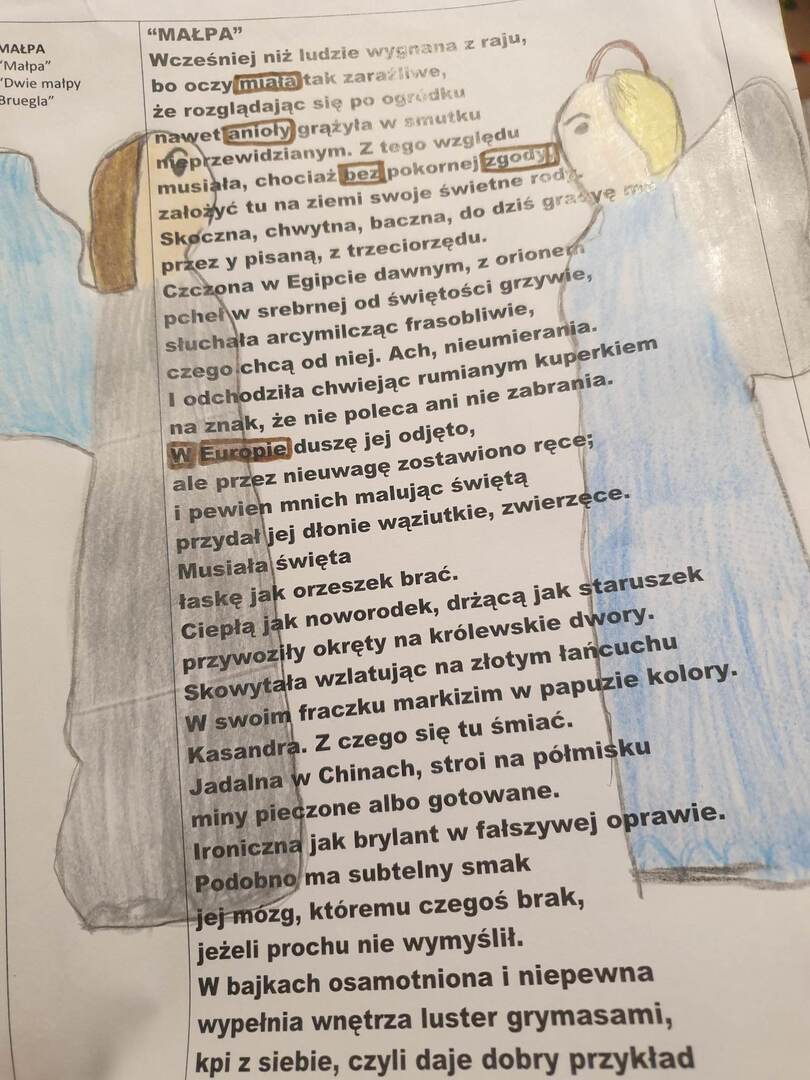 MAŁPA
"Małpa"
"Dwie małpy
Bruegla"
"MAŁPA"
Wcześniej niż ludzie wygnana z raju,
bo oczy miała tak zaraźliwe,
że rozglądając się po ogródku
nawet anioły grążyła w smutku
nieprzewidzianym. Z tego względu
musiała, chociaż bez pokornej zgody,
założyć tu na ziemi swoje świetne rody.
Skoczna, chwytna, baczna, do dziś grasyę ma
przez y pisaną, z trzeciorzędu.
Czczona w Egipcie dawnym, z orionem
pcheł w srebrnej od świętości grzywie,
słuchała arcymilcząc frasobliwie,
czego chcą od niej. Ach, nieumierania.
I odchodziła chwiejąc rumianym kuperkiem
na znak, że nie poleca ani nie zabrania.
W Europie duszę jej odjęto,
ale przez nieuwagę zostawiono ręce;
i pewien mnich malując świętą
przydał jej dłonie wąziutkie, zwierzęce.
Musiała święta
łaskę jak orzeszek brać.
Ciepłą jak noworodek, drżącą jak staruszek
przywoziły okręty na królewskie dwory.
Skowytała wzlatując na złotym łańcuchu
W swoim fraczku markizim w papuzie kolory.
Kasandra. Z czego się tu śmiać.
Jadalna w Chinach, stroi na półmisku
miny pieczone albo gotowane.
Ironiczna jak brylant w fałszywej oprawie.
Podobno ma subtelny smak
jej mózg, któremu czegoś brak,
jeżeli prochu nie wymyślił.
W bajkach osamotniona i niepewna
wypełnia wnętrza luster grymasami,
kpi z siebie, czyli daje dobry przykład